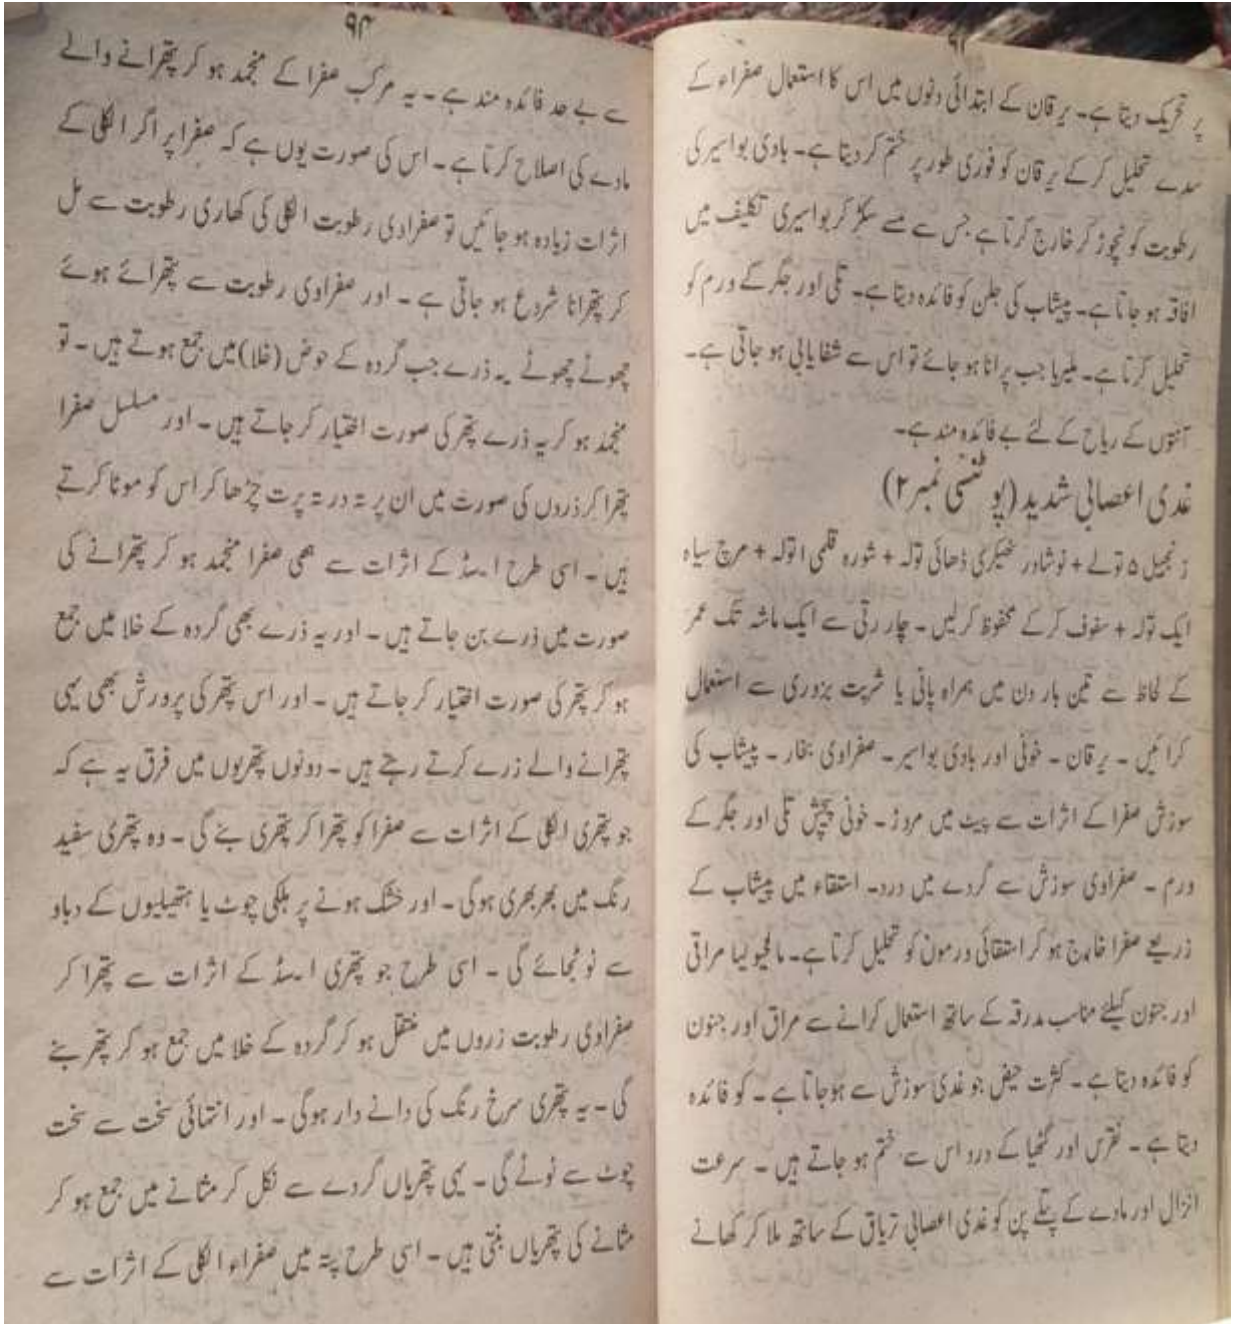 ۹۳
پر تحریک دیتا ہے۔ یرقان کے ابتدائی دنوں میں اس کا استعمال صفراء کے
سدے تحلیل کر کے یرقان کو فوری طور پر ختم کر دیتا ہے۔ بادی بواسیر کی
رطوبت کو نچوڑ کر خارج کرتا ہے جس سے مسے سکڑ کر بواسیری تکلیف میں
افاقہ ہو جاتا ہے۔ پیشاب کی جلن کو فائدہ دیتا ہے۔ تلی اور جگر کے ورم کو
تحلیل کرتا ہے۔ ملیریا جب پرانا ہو جائے تو اس سے شفایابی ہو جاتی ہے۔
آنتوں کے ریاح کے لئے بے فائدہ مند ہے۔
غدی اعصابی شدید (پوٹنسی نمبر ۲)
زنجبیل ۵ تولے + نوشادر ٹھیکری ڈھائی تولہ + شورہ قلمی اتولہ + مرچ سیاہ
ایک تولہ + سفوف کرکے محفوظ کر لیں۔ چار رتی سے ایک ماشہ تک عمر
کے لحاظ سے تین بار دن میں ہمراہ پانی یا شربت بزوری سے استعمال
کرائیں ۔ یرقان ۔ خونی اور بادی بواسیر ۔ صفراوی بخار ۔ پیشاب کی
سوزش صفرا کے اثرات سے پیٹ میں مروڑ ۔ خونی پیچش تلی اور جگر کے
ورم ۔ صفراوی سوزش سے گردے میں درد۔ استقاء میں پیشاب کے
ذریعے صفرا خارج ہو کر استقائی ورموں کو تحلیل کرتا ہے۔ مالیخولیا مراقی
اور جنون کیلئے مناسب بدرقہ کے ساتھ استعمال کرانے سے مراق اور جنون
کو فائدہ دیتا ہے ۔ کثرت حیض جو غدی سوزش سے ہو جاتا ہے ۔ کو فائدہ
دیتا ہے ۔ نقرس اور گٹھیا کے درد اس سے ختم ہو جاتے ہیں ۔ سرعت
انزال اور مادے کے پتلے پن کو غدی اعصابی تریاق کے ساتھ ملا کر کھانے
۹۴
سے بے حد فائدہ مند ہے ۔ یہ مرکب صفرا کے منجمد ہو کر پتھرانے والے
مادے کی اصلاح کرتا ہے ۔ اس کی صورت یوں ہے کہ صفرا پر اگر الکلی کے
اثرات زیادہ ہو جائیں تو صفراوی رطوبت الکلی کی کھاری رطوبت سے مل
کر پتھرانا شروع ہو جاتی ہے ۔ اور صفراوی رطوبت سے پتھرائے ہوئے
چھوٹے چھوٹے یہ ذرے جب گردہ کے حوض (خلا) میں جمع ہوتے ہیں ۔ تو
منجمد ہو کر یہ ذرے پتھر کی صورت اختیار کر جاتے ہیں ۔ اور مسلسل صفرا
پتھرا کر ذروں کی صورت میں ان پر تہ در تہ پرت چڑھا کر اس کو موٹا کرتے
ہیں ۔ اسی طرح ایسڈ کے اثرات سے بھی صفرا منجمد ہو کر پتھرانے کی
صورت میں ذرے بن جاتے ہیں ۔ اور یہ ذرے بھی گردہ کے خلا میں جمع
ہو کر پتھر کی صورت اختیار کر جاتے ہیں ۔ اور اس پتھر کی پرورش بھی یہی
پتھرانے والے زرے کرتے رہتے ہیں ۔ دونوں پتھریوں میں فرق یہ ہے کہ
جو پتھری الکلی کے اثرات سے صفرا کو پتھرا کر پتھری بنے گی ۔ وہ پتھری سفید
رنگ میں بھربھری ہوگی ۔ اور خشک ہونے پر ہلکی چوٹ یا ہتھیلیوں کے دباو
سے ٹوٹجائے گی ۔ اسی طرح جو پتھری ایسڈ کے اثرات سے پتھرا کر
صفراوی رطوبت زروں میں منتقل ہو کر گردہ کے خلا میں جمع ہو کر پتھر بنے
گی ۔ یہ پتھری سرخ رنگ کی دانے دار ہوگی ۔ اور انتہائی سخت سے سخت
چوٹ سے ٹوٹے گی ۔ یہی پتھریاں گردے سے نکل کر مثانے میں جمع ہو کر
مثانے کی پتھریاں بنتی ہیں ۔ اسی طرح پتہ میں صفراء الکلی کے اثرات سے